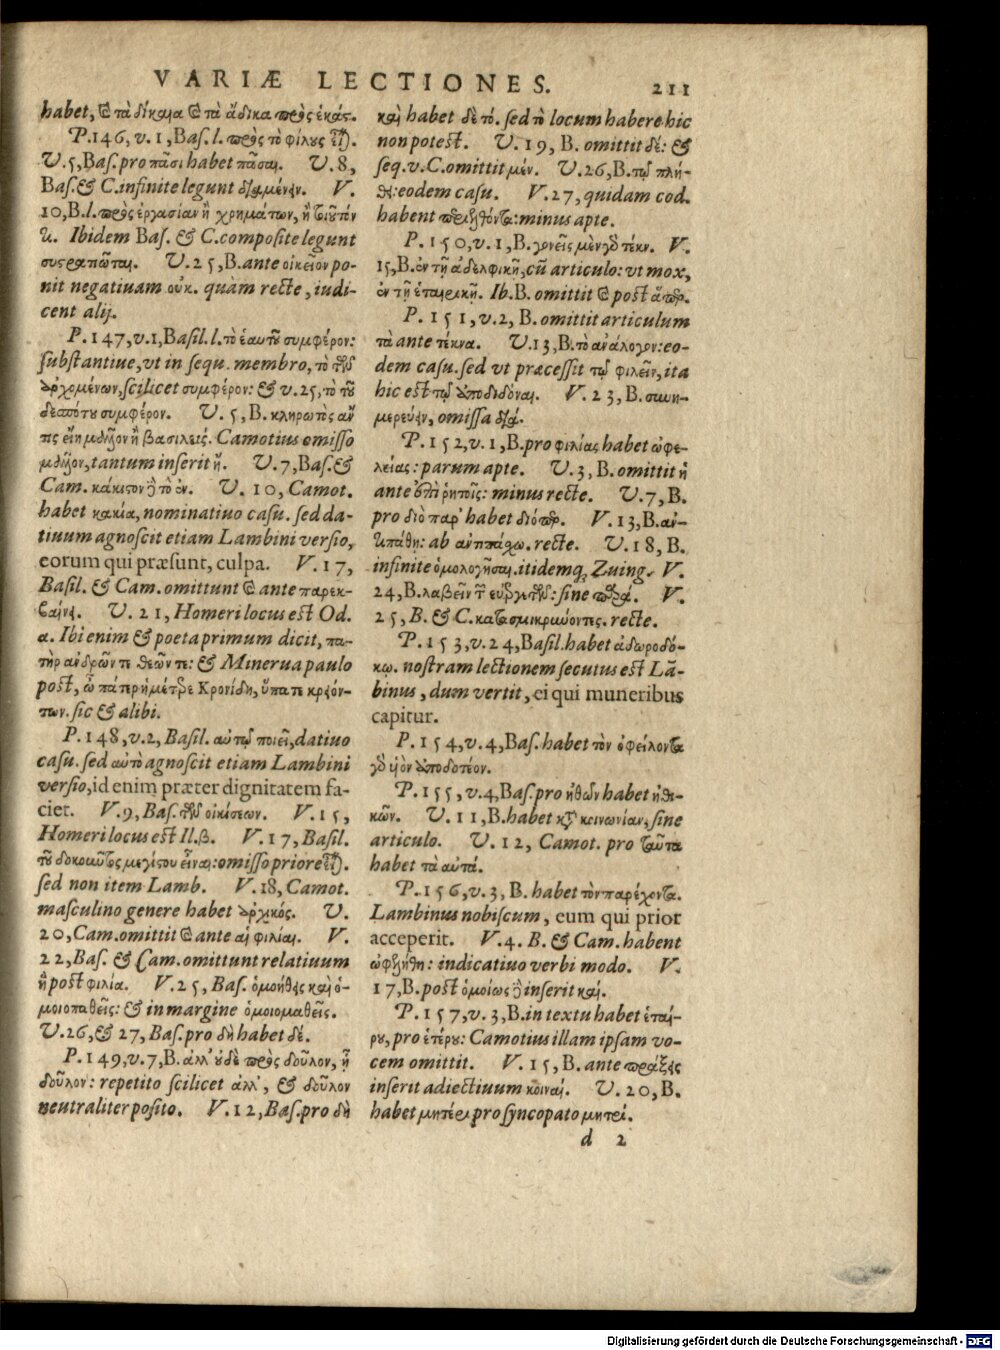 VARIÆ LECTIONES. 211
habet, καὶ τὰ δίκαια καὶ τὰ ἄδικα πρὸς ἑκάς.
P. 146, v. 1, Baſ. l. πρὸς τὸ φίλους εἶ).
V. 5, Baſ. pro πᾶσι habet πᾶσαι. V. 8,
Baſ. & C. infinite legunt διαμένειν. V.
10, B. l. πρὸς ἐργασίαν ἢ χρημάτων, ἢ τοιοῦτόν
τι. Ibidem Baſ. & C. compoſite legunt
συστρέπωται. V. 25, B. ante οἰκεῖον po-
nit negatiuam οὐκ. quàm recte, iudi-
cent alij.
P. 147, v. 1, Baſil. l. τὸ ἑαυτοῦ συμφέρον:
ſubſtantiue, vt in ſequ. membro, τὸ τῶν
ἀρχομένων, ſcilicet συμφέρον: & v. 25, τὸ τοῦ
δεσπότου συμφέρον. V. 5, B. κληρωτὸς ἄν
τις εἴη μᾶλλον ἢ βασιλεύς. Camotius omiſſo
μᾶλλον, tantum inſerit ἤ. V. 7, Baſ. &
Cam. κάκιστον δὲ τὸ ἐν. V. 10, Camot.
habet κακία, nominatiuo caſu. ſed da-
tiuum agnoſcit etiam Lambini verſio,
eorum qui præſunt, culpa. V. 17,
Baſil. & Cam. omittunt καὶ ante παρεκ-
βαίνει. V. 21, Homeri locus eſt Od.
α. Ibi enim & poeta primum dicit, πα-
τὴρ ἀνδρῶν τε θεῶν τε: & Minerua paulo
poſt, ὦ πάτερ ἡμέτερε Κρονίδη, ὕπατε κρειόν-
των. ſic & alibi.
P. 148, v. 2, Baſil. αὐτῷ ποιεῖ, datiuo
caſu. ſed αὐτὸ agnoſcit etiam Lambini
verſio, id enim præter dignitatem fa-
ciet. V. 9, Baſ. τῶν οἰκίσεων. V. 15,
Homeri locus eſt Il. β. V. 17, Baſil.
τοῦ δοκοῦντος μεγίστου εἶναι: omiſſo priore εἶ).
ſed non item Lamb. V. 18, Camot.
maſculino genere habet ἀρχικός. V.
20, Cam. omittit καὶ ante αἱ φιλίαι. V.
22, Baſ. & Cam. omittunt relatiuum
ἢ poſt φιλία. V. 25, Baſ. ὁμοήθεις καὶ ὁ-
μοιοπαθεῖς: & in margine ὁμοιομαθεῖς.
V. 26, & 27, Baſ. pro δὴ habet δέ.
P. 149, v. 7, B. ἀλλ' οὐδὲ πρὸς δοῦλον, ᾗ
δοῦλον: repetito ſcilicet ἀλλ', & δοῦλον
neutraliter poſito. V. 12, Baſ. pro δὴ
καὶ habet δὲ τό. ſed τὸ locum habere hic
non poteſt. V. 19, B. omittit δέ: &
ſeq. v. C. omittit μέν. V. 26, B. τῷ πλή-
θει: eodem caſu. V. 27, quidam cod.
habent : minus apte.
P. 150, v. 1, B. γονεῖς μὲν γὸ τέκν. V.
15, B. ἐν τῇ ἀδελφικῇ, cũ articulo: vt mox,
ἐν τῇ ἑταιρικῇ. Ib. B. omittit καὶ poſt ἅπερ.
P. 151, v. 2, B. omittit articulum
τὰ ante τέκνα. V. 13, B. τὸ ἀνάλογον: eo-
dem caſu. ſed vt præceſſit τῷ φιλεῖν, ita
hic eſt τῷ ἀποδιδόναι. V. 23, B. συνη-
μερεύειν, omiſſa διά.
P. 152, v. 1, B. pro φιλίας habet ὠφε-
λείας: parum apte. V. 3, B. omittit ἡ
ante ἐπὶ ῥητοῖς: minus recte. V. 7, B.
pro διὸ παρ' habet διόπερ. V. 13, B. ἀν-
τιπάθη: ab ἀντιπάσχω. recte. V. 18, B.
infinite ὁμολογῆσαι. itidemq; Zuing. V.
24, B. λαβεῖν τ͂ εὐεργετῶν: ſine παρά. V.
25, B. & C. κατασμικρύνοντες. recte.
P. 153, v. 24, Baſil. habet ἀδωροδό-
κῳ. noſtram lectionem ſecutus eſt Lā-
binus, dum vertit, ei qui muneribus
capitur.
P. 154, v. 4, Baſ. habet τὸν ὀφείλοντα
γὸ υἱὸν ἀποδοτέον.
P. 155, v. 4, Baſ. pro ἠθῶν habet ἠθι-
κῶν. V. 11, B. habet κατὰ κοινωνίαν, ſine
articulo. V. 12, Camot. pro ταῦτα
habet τὰ αὐτά.
P. 156, v. 3, B. habet τὸν παρέχοντα.
Lambinus nobiſcum, eum qui prior
acceperit. V. 4. B. & Cam. habent
ὠφελήθη: indicatiuo verbi modo. V.
17, B. poſt ὁμοίως δὲ inſerit καί.
P. 157, v. 3, B. in textu habet ἑταί-
ρου, pro ἑτέρου: Camotius illam ipſam vo-
cem omittit. V. 15, B. ante πράξεις
inſerit adiectiuum κοιναί. V. 20, B.
habet μητέρι pro ſyncopato μητρί.
d 2
Digitalisierung gefördert durch die Deutsche Forschungsgemeinschaft - DFG